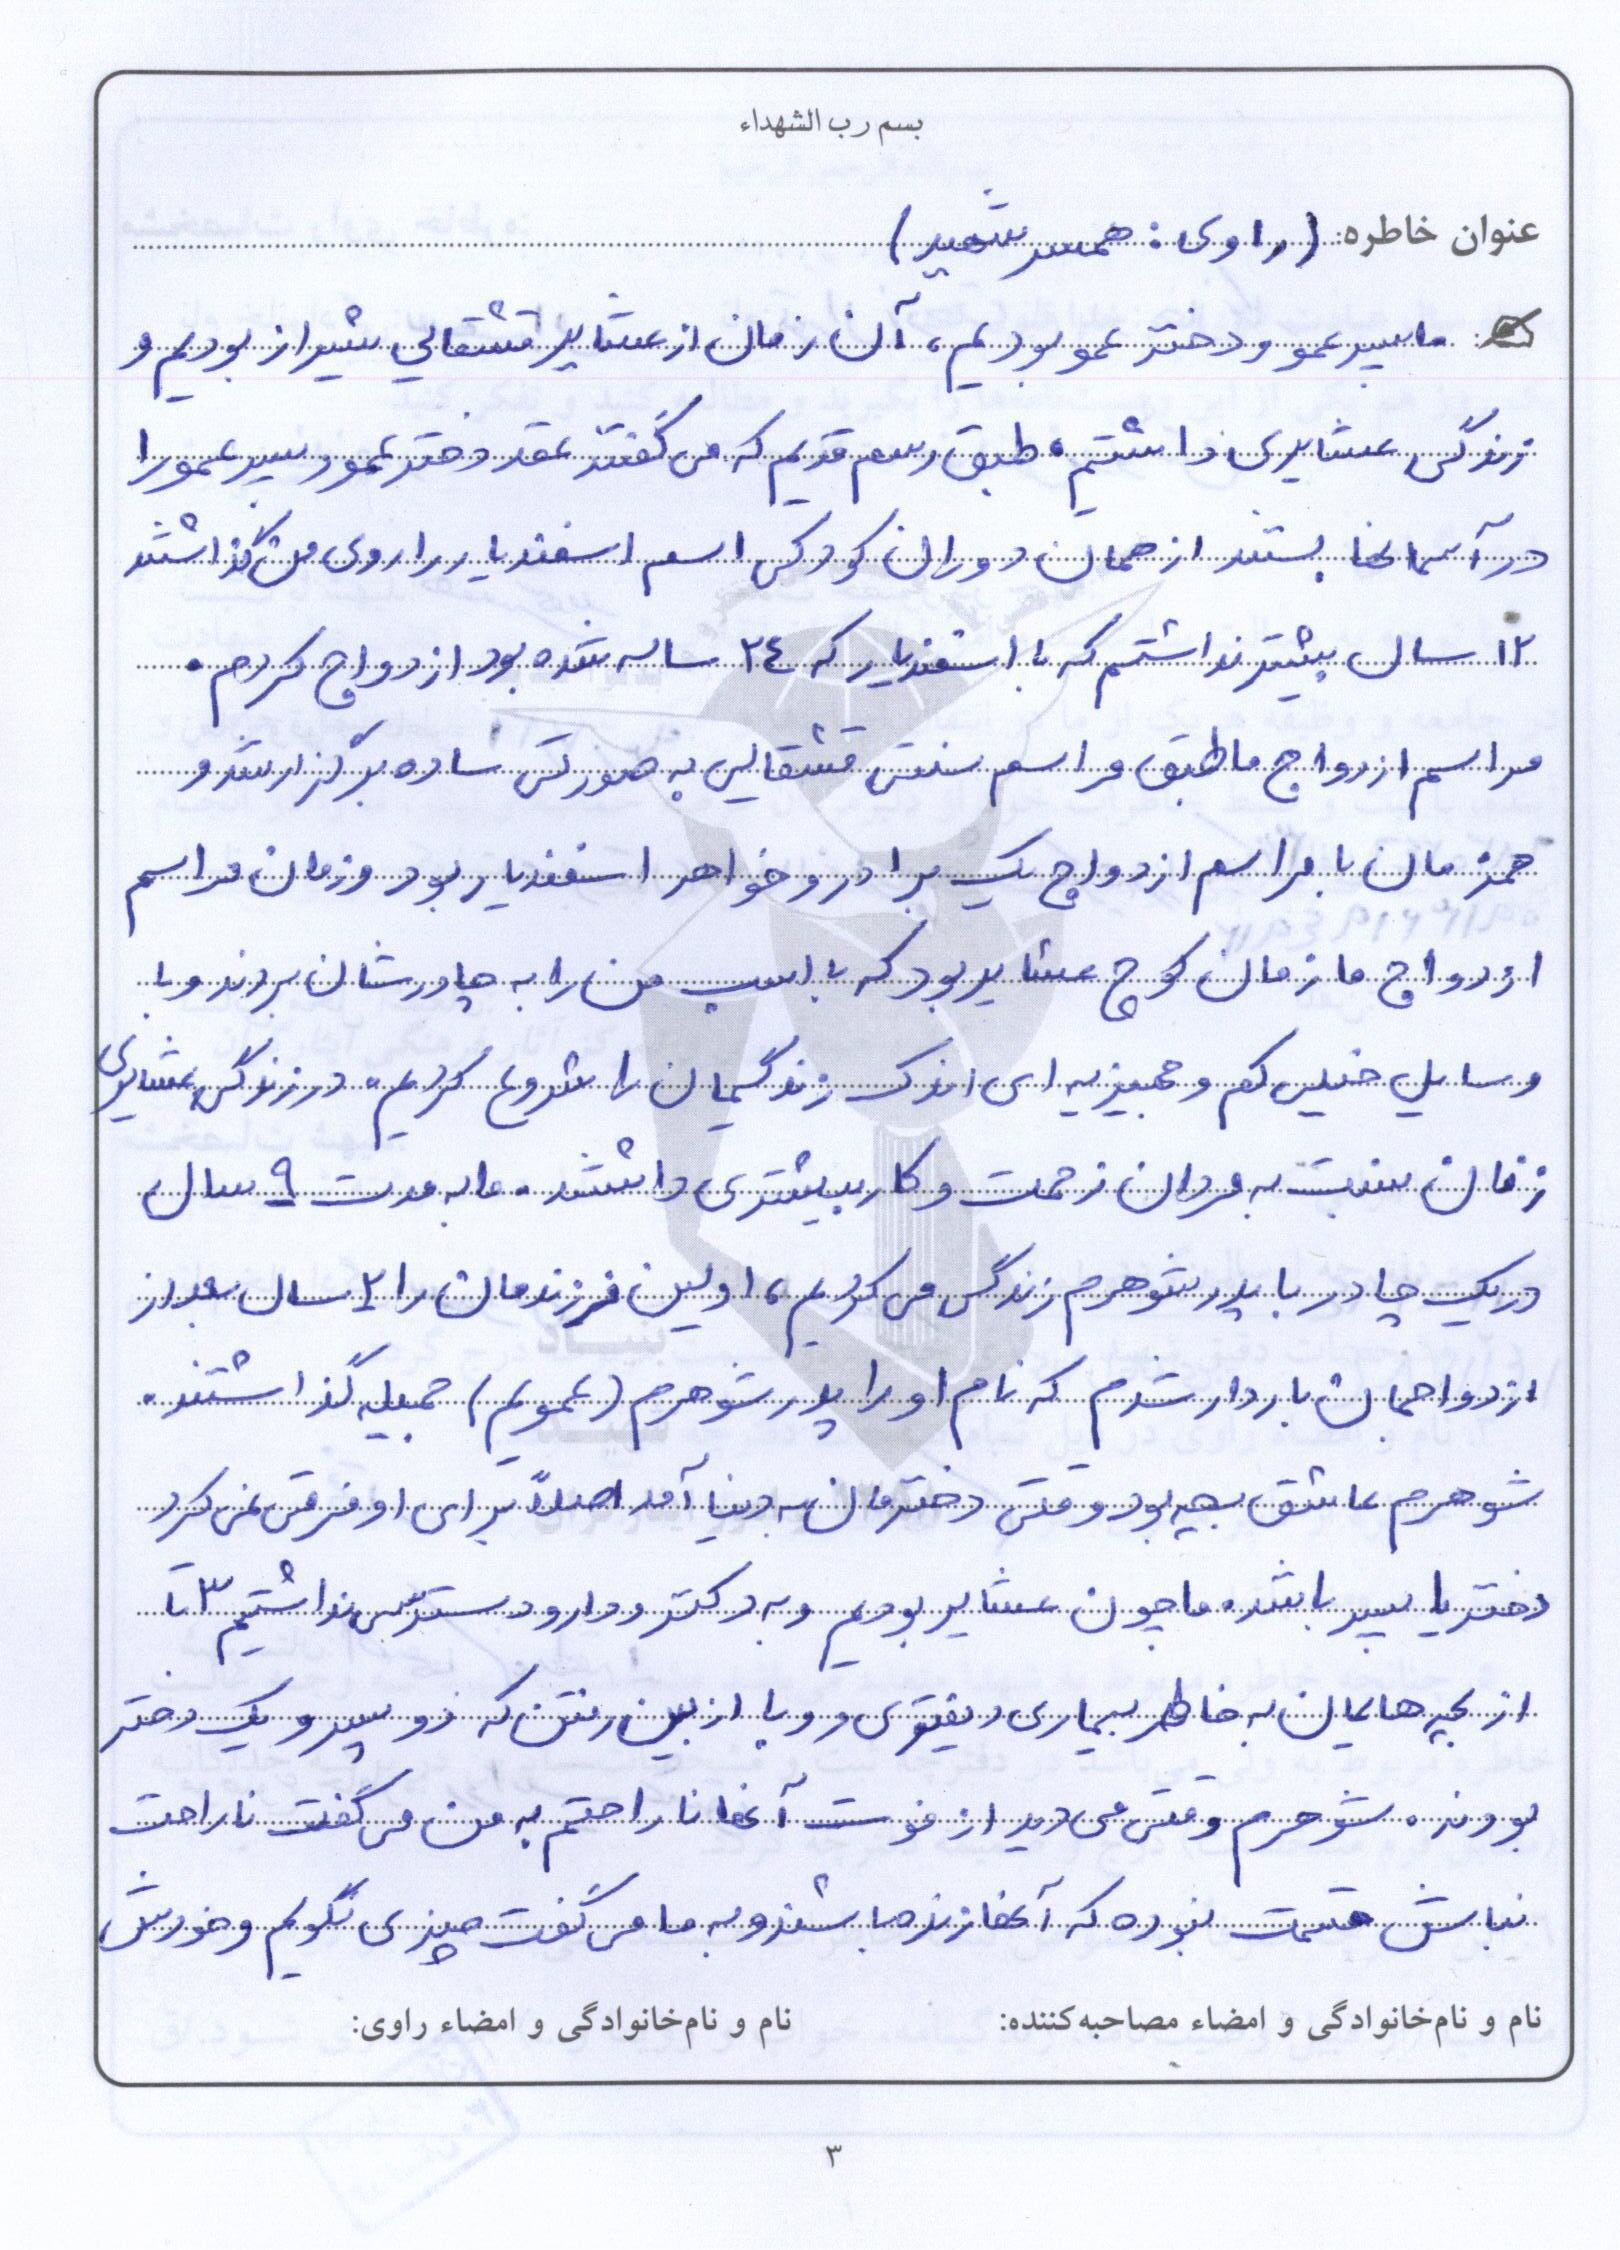 بسم رب الشهداء
عنوان خاطره: (راوی: همسر شهید)
ما پسر عمو و دختر عمو بودیم، آن زمان از عشایر قشقایی شیراز بودیم و
زندگی عشایری داشتیم، طبق رسم قدیم که می گفتند عقد دختر عمو و پسر عمو را
در آسمانها بستند از همان دوران کودکی اسم اسفندیار را روی من گذاشتند
۱۲ سال بیشتر نداشتم که با اسفندیار که ۲۴ ساله شده بود ازدواج کردم.
مراسم ازدواج ما طبق مراسم سنتی قشقایی به صورتی ساده برگزار شد و
همزمان با مراسم ازدواج یک برادر و خواهر اسفندیار بود و زمان مراسم
ازدواج ما زمان کوچ عشایر بود که با اسب من را به چادرشان بردند و با
وسایل خیلی کم و جهیزیه ای اندک زندگیمان را شروع کردیم. در زندگی عشایری
زنان نسبت به مردان زحمت و کار بیشتری داشتند. ما به مدت ۹ سال
در یک چادر با پدر شوهرم زندگی می کردیم، اولین فرزندمان را ۲ سال بعد از
ازدواجمان باردار شدم که نام او را پدر شوهرم (عمویم) جمیله گذاشتند.
شوهرم عاشق بچه بود وقتی دخترمان به دنیا آمد اصلاً برای او فرقی نمی کرد
دختر یا پسر باشد. ما چون عشایر بودیم و به دکتر و دارو دسترسی نداشتیم ۳ تا
از بچه هایمان به خاطر بیماری دیفتری و وبا از بین رفتن که دو پسر و یک دختر
بودند. شوهرم وقتی می دید از فوت آنها ناراحتم به من می گفت ناراحت
نباش قسمت نبوده که آنها زنده باشند و به ما می گفت چیزی نگویم و خودش
نام و نام‌خانوادگی و امضاء مصاحبه‌کننده: نام و نام‌خانوادگی و امضاء راوی:
۳